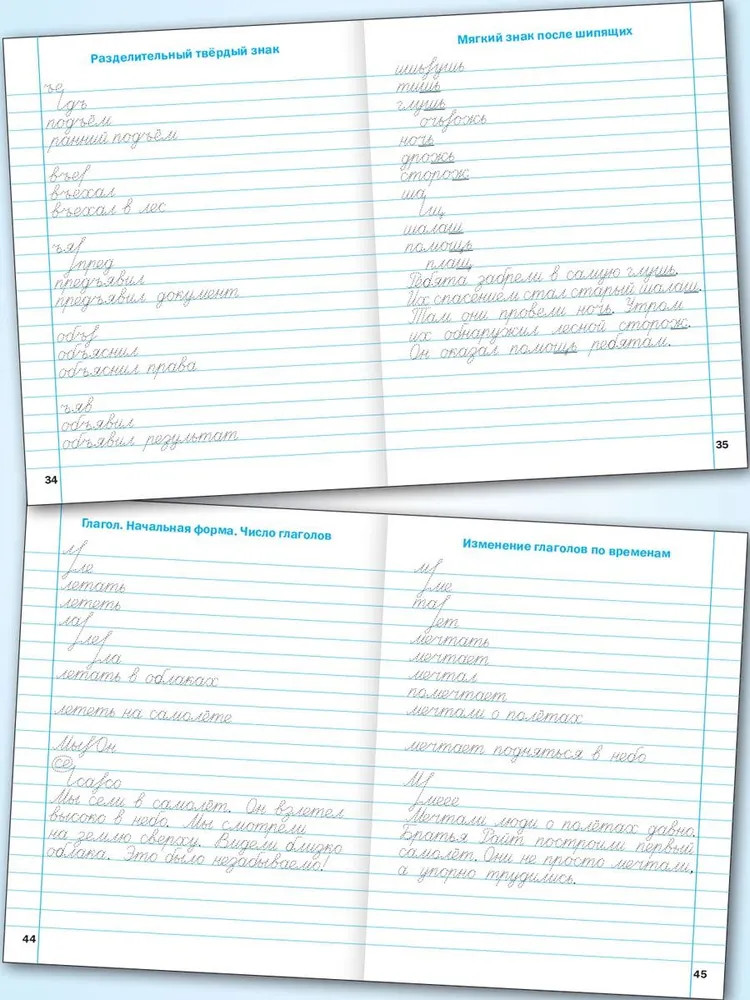 Разделительный твёрдый знак
ъе
дъ
подъём
ранний подъём
въе
въехал
въехал в лес
ъя
пред
предъявил
предъявил документ
объ
объяснил
объяснил права
ъяв
объявил
объявил результат
34
Мягкий знак после шипящих
ишь ушь
тишь
глушь
очь ожь
ночь
дрожь
сторож
ша
щ
шалаш
помощь
плащ
Ребята забрели в самую глушь.
Их спасением стал старый шалаш.
Там они провели ночь. Утром
их обнаружил лесной сторож.
Он оказал помощь ребятам.
35
Глагол. Начальная форма. Число глаголов
л
ле
летать
лететь
ла
ле
ла
летать в облаках
лететь на самолёте
Мы Он
се
са со
Мы сели в самолёт. Он взлетел
высоко в небо. Мы смотрели
на землю сверху. Видели близко
облака. Это было незабываемо!
44
Изменение глаголов по временам
м
ме
та
ет
мечтать
мечтает
мечтал
помечтает
мечтали о полётах
мечтает подняться в небо
М
Мечтали люди о полётах давно.
Братья Райт построили первый
самолёт. Они не просто мечтали,
а упорно трудились.
45